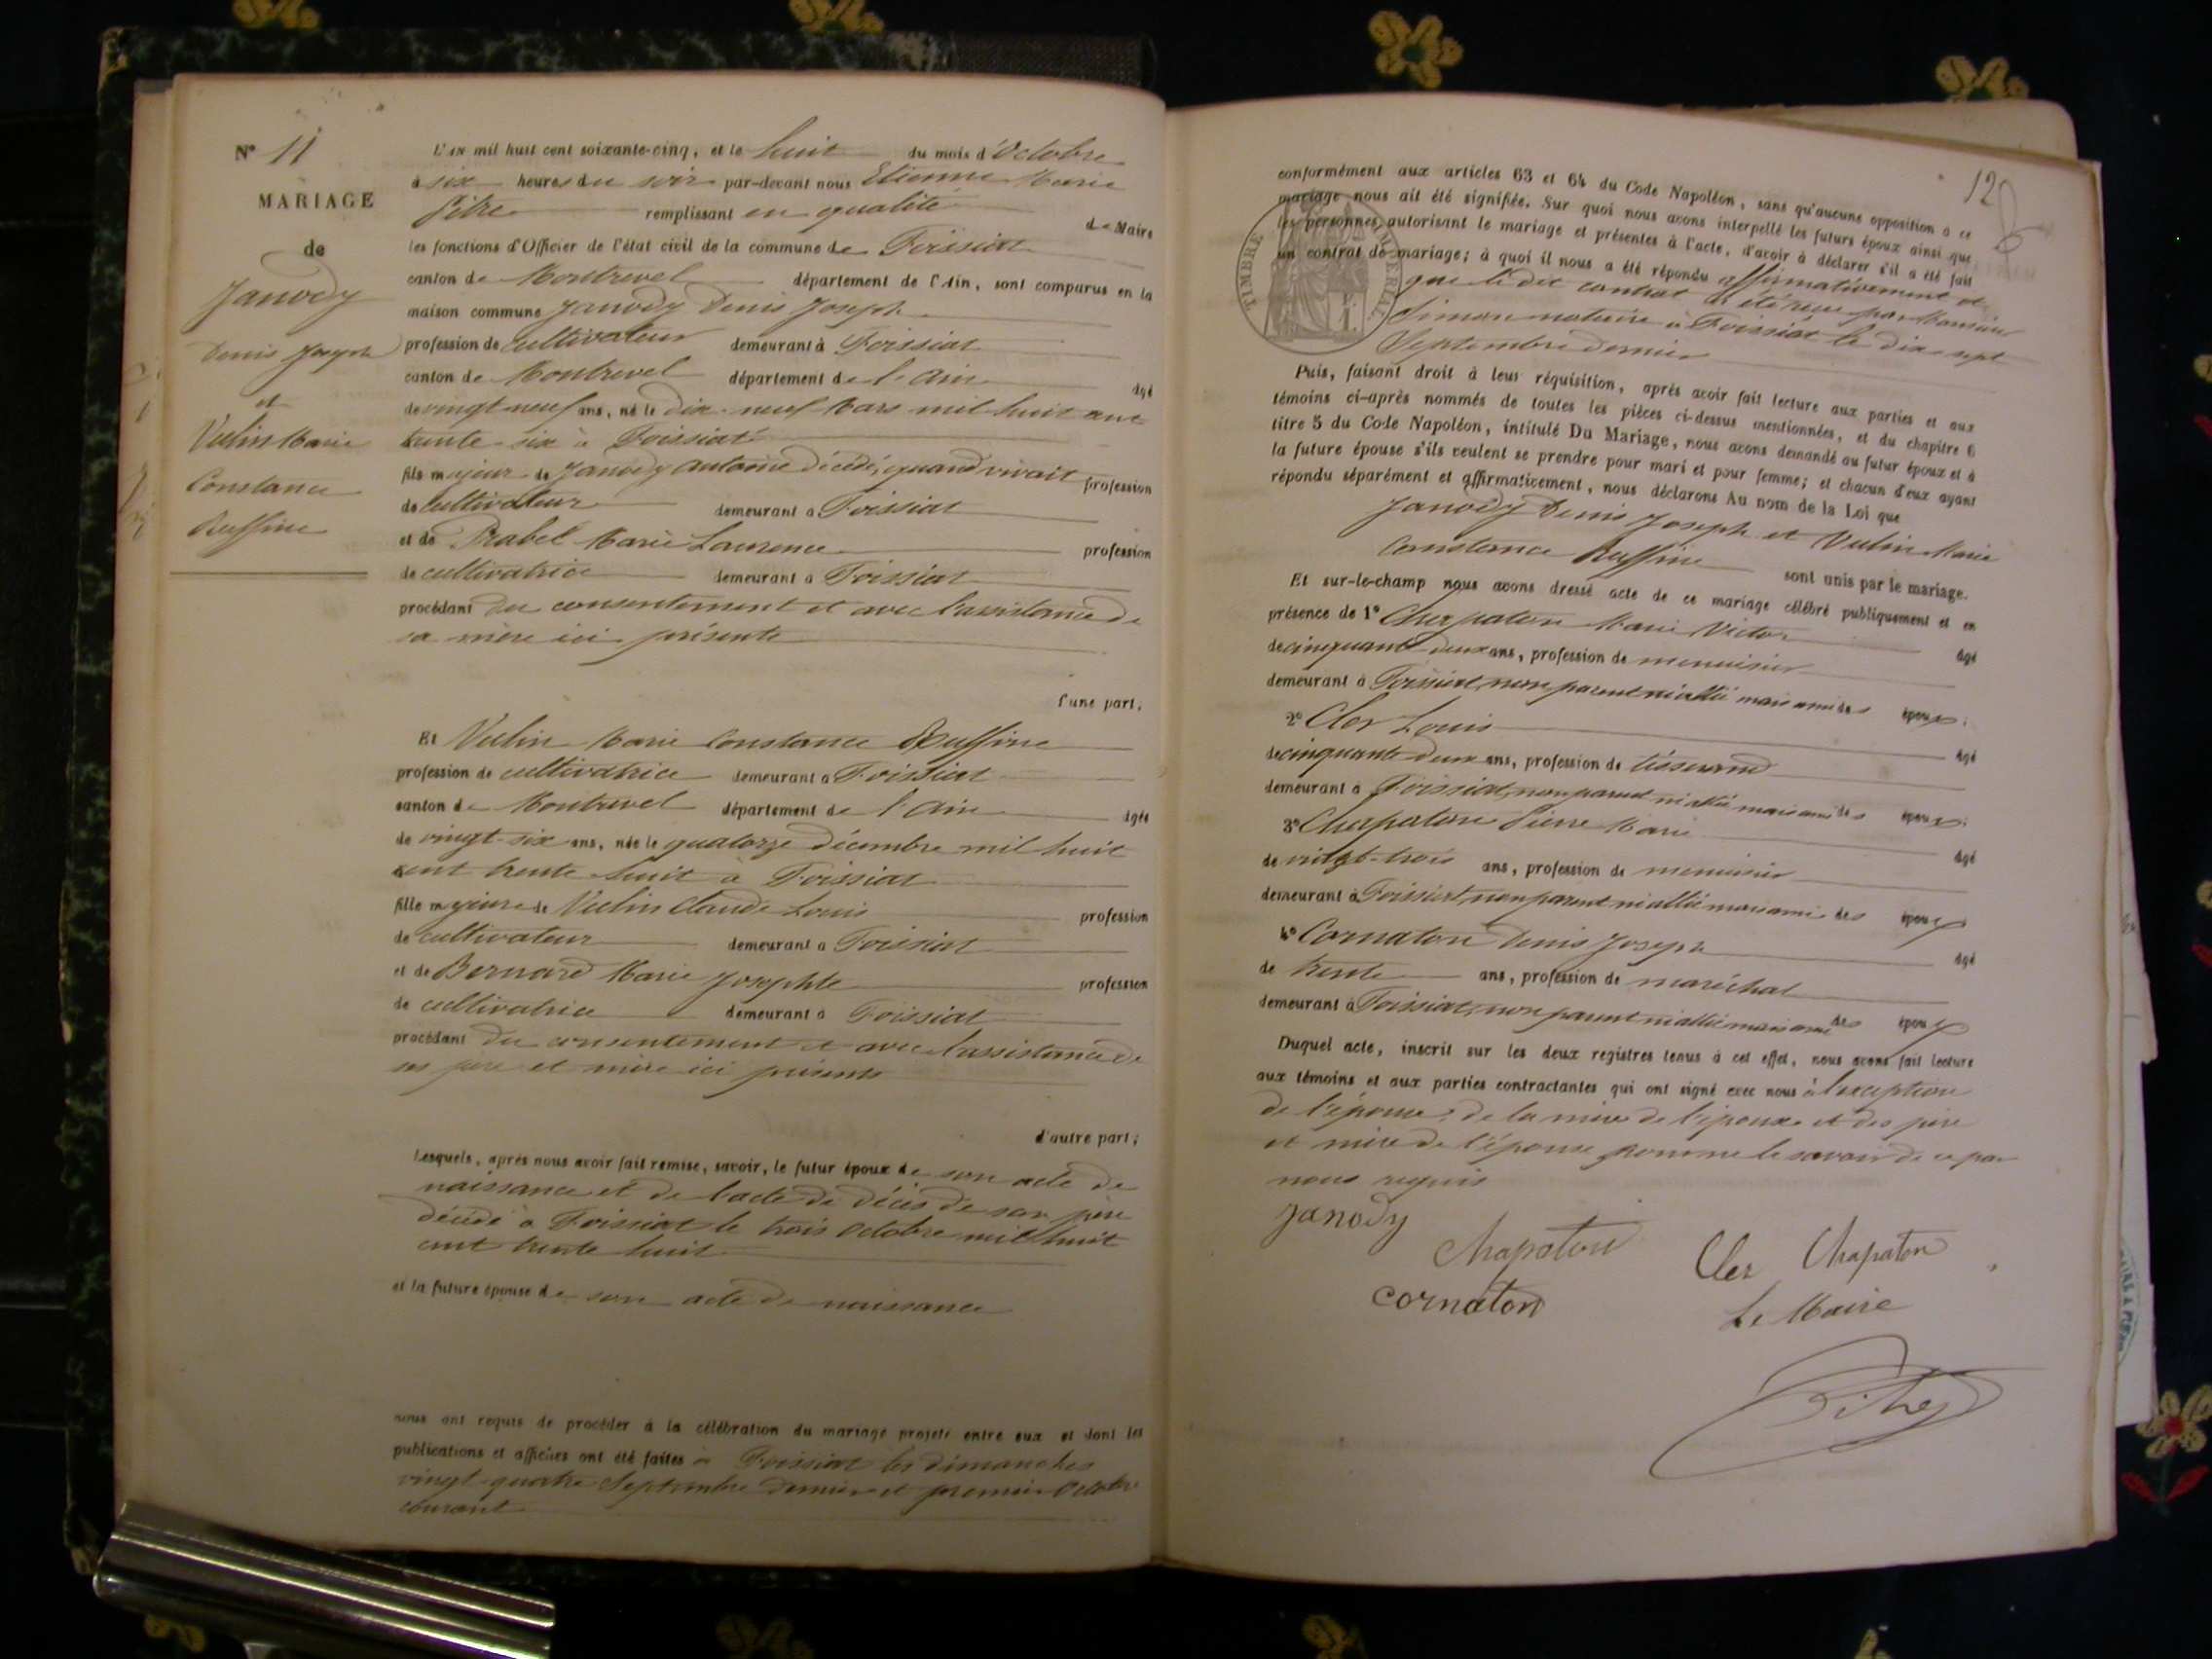 N° 11
MARIAGE
de
Janody
Denis Joseph
et
Vulin Marie
Constance
Ruffine
L'an mil huit cent soixante-cinq, et le huit du mois d'Octobre
à six heures du soir par-devant nous Etienne Marie
Pitre remplissant en qualité de Maire
les fonctions d'Officier de l'état civil de la commune de Foissiat
canton de Montrevel département de l'Ain, sont comparus en la
maison commune Janody Denis Joseph
profession de cultivateur demeurant à Foissiat
canton de Montrevel département de l'Ain âgé
de vingt-neuf ans, né le dix-neuf Mars mil huit cent
trente-six à Foissiat
fils majeur de Janody Antoine décédé, quand vivait profession
de cultivateur demeurant à Foissiat
et de Prabel Marie Laurence profession
de cultivatrice demeurant à Foissiat
procédant du consentement et avec l'assistance de
sa mère ici présente
d'une part;
Et Vulin Marie Constance Ruffine
profession de cultivatrice demeurant à Foissiat
canton de Montrevel département de l'Ain âgée
de vingt-six ans, née le quatorze décembre mil huit
cent trente huit à Foissiat
fille majeure de Vulin Claude Louis profession
de cultivateur demeurant à Foissiat
et de Bernard Marie Josephte profession
de cultivatrice demeurant à Foissiat
procédant du consentement et avec l'assistance de
ses père et mère ici présents
d'autre part;
Lesquels, après nous avoir fait remise, savoir, le futur époux de son acte de
naissance et de l'acte de décès de son père
décédé à Foissiat le trois Octobre mil huit
cent trente huit
et la future épouse de son acte de naissance
nous ont requis de procéder à la célébration du mariage projeté entre eux et dont les
publications et affiches ont été faites à Foissiat les dimanches
vingt-quatre Septembre dernier et premier Octobre
courant
12
conformément aux articles 63 et 64 du Code Napoléon, sans qu'aucune opposition à ce
mariage nous ait été signifiée. Sur quoi nous avons interpellé les futurs époux ainsi que
les personnes autorisant le mariage et présentes à l'acte, d'avoir à déclarer s'il a été fait
un contrat de mariage; à quoi il nous a été répondu affirmativement et
que le dit contrat a été reçu par Monsieur
Simon notaire à Foissiat le dix-sept
Septembre dernier
TIMBRE IMPERIAL
Puis, faisant droit à leur réquisition, après avoir fait lecture aux parties et aux
témoins ci-après nommés de toutes les pièces ci-dessus mentionnées, et du chapitre 6
titre 5 du Code Napoléon, intitulé Du Mariage, nous avons demandé au futur époux et à
la future épouse s'ils veulent se prendre pour mari et pour femme; et chacun d'eux ayant
répondu séparément et affirmativement, nous déclarons Au nom de la Loi que
Janody Denis Joseph et Vulin Marie
Constance Ruffine sont unis par le mariage.
Et sur-le-champ nous avons dressé acte de ce mariage célébré publiquement et en
présence de 1° Chapaton Marie Victor âgé
de cinquante deux ans, profession de menuisier
demeurant à Foissiat, non parent ni allié mais ami des époux;
2° Cler Louis âgé
de cinquante deux ans, profession de tisserand
demeurant à Foissiat, non parent ni allié mais ami des époux;
3° Chapaton Pierre Marie âgé
de vingt-trois ans, profession de menuisier
demeurant à Foissiat, non parent ni allié mais ami des époux
4° Cornaton Denis Joseph âgé
de trente ans, profession de maréchal
demeurant à Foissiat, non parent ni allié mais ami des époux
Duquel acte, inscrit sur les deux registres tenus à cet effet, nous avons fait lecture
aux témoins et aux parties contractantes qui ont signé avec nous à l'exception
de l'épouse, de la mère de l'époux et des père
et mère de l'épouse pour ne le savoir de ce par
nous requis
Janody
Chapaton Cler Chapaton
Cornaton Le Maire
Pitre